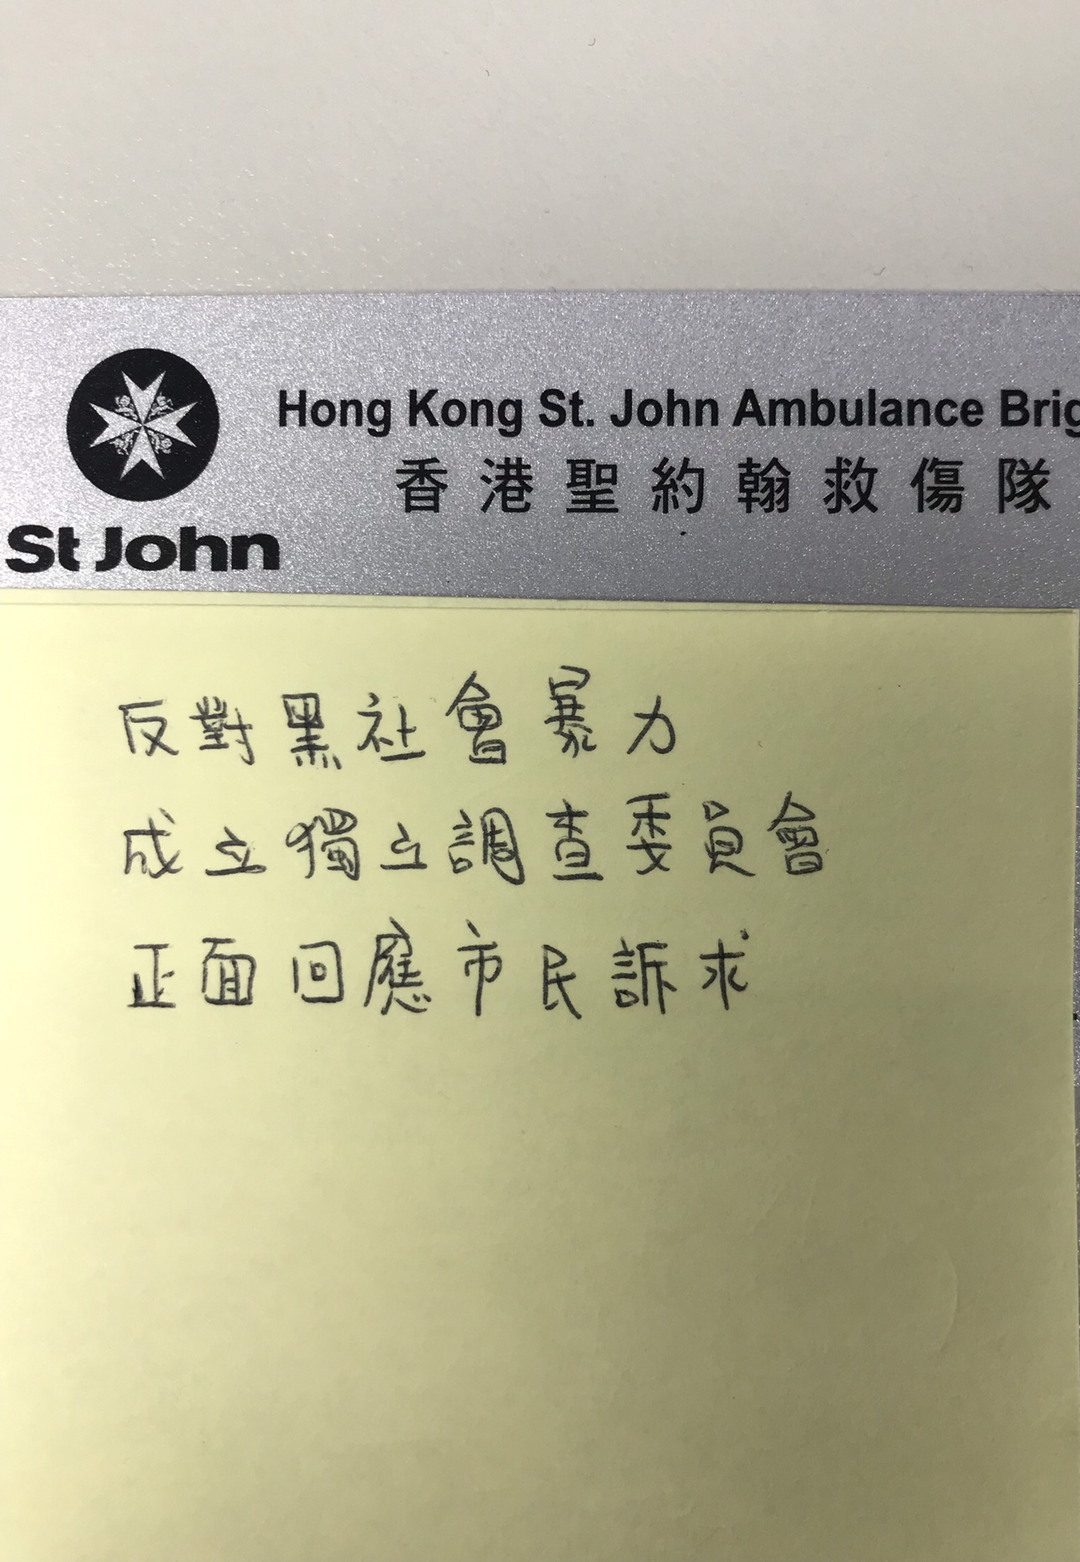 Hong Kong St. John Ambulance Brig
香港聖約翰救傷隊
St John
反對黑社會暴力
成立獨立調查委員會
正面回應市民訴求